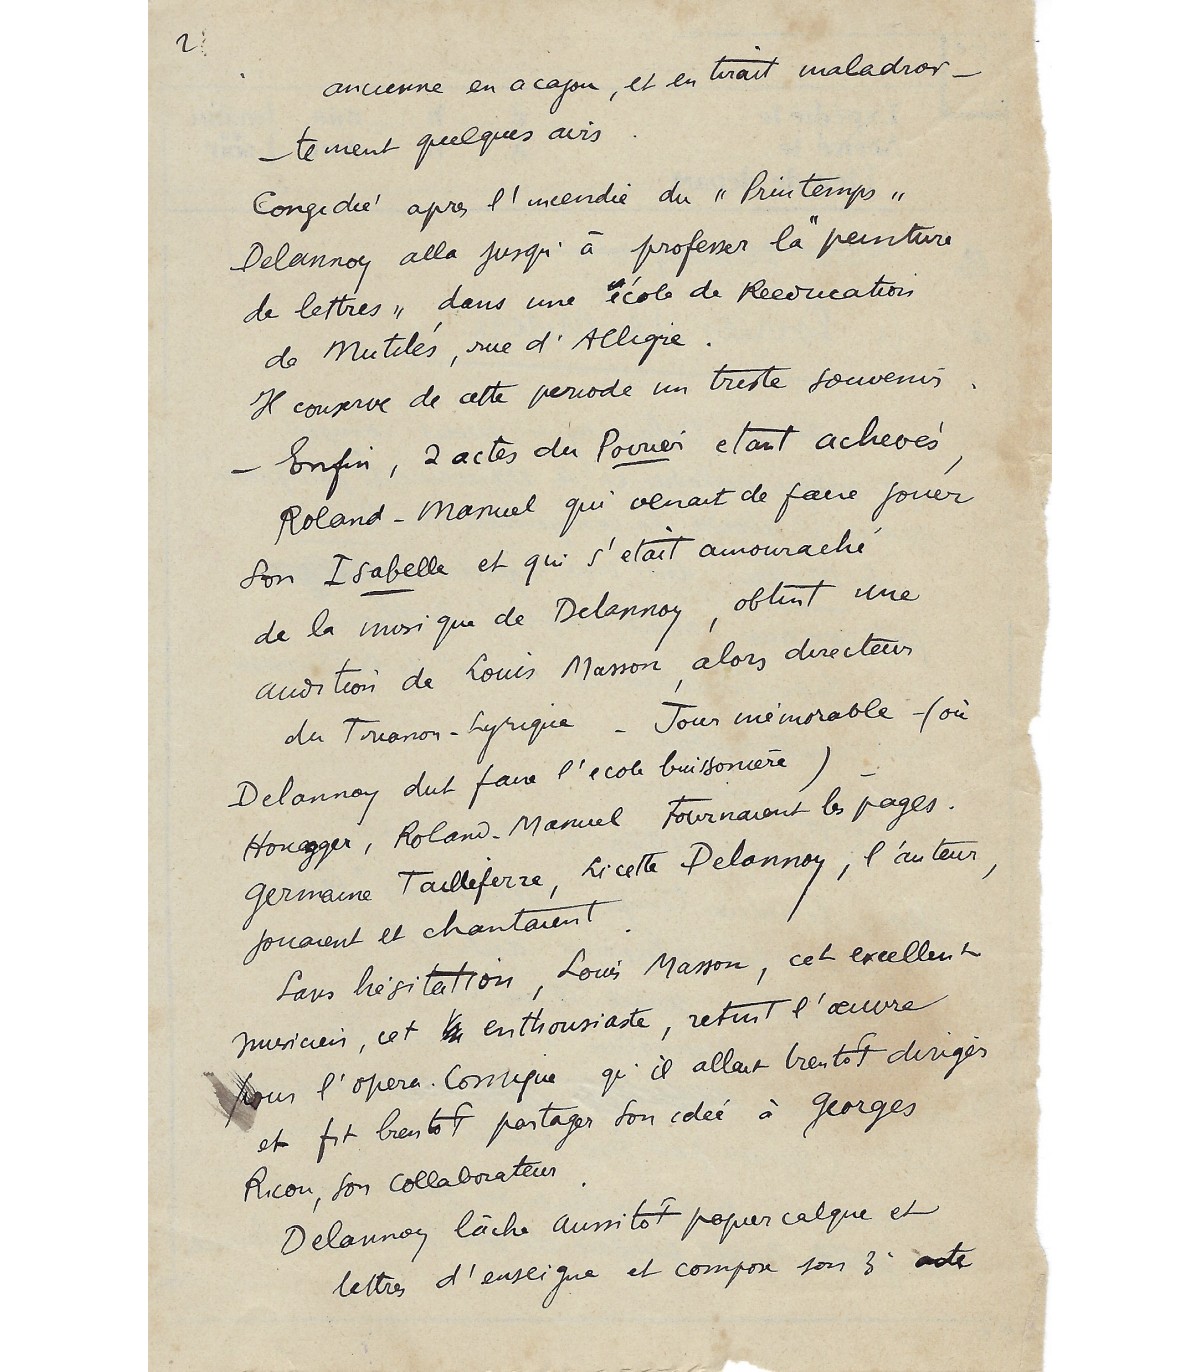 2
ancienne en acajou, et en tirait maladroi-
-tement quelques airs.
Congedié apres l'incendie du "Printemps"
Delannoy alla jusqu'à professer la "peinture
de lettres" dans une école de Reeducation
de Mutilés, rue d'Alligre.
Il conserve de cette periode un triste souvenir.
- Enfin, 2 actes du Poirier etant achevés,
Roland-Manuel qui venait de faire jouer
son Isabelle et qui s'etait amouraché
de la musique de Delannoy, obtint une
audition de Louis Masson, alors directeur
du Trianon-Lyrique - Jour mémorable - (où
Delannoy dut faire l'ecole buissonière) -
Honegger, Roland-Manuel tournaient les pages.
Germaine Tailleferre, Lisette Delannoy, l'auteur,
jouaient et chantaient.
Sans hésitation, Louis Masson, cet excellent
musicien, cet enthousiaste, retint l'œuvre
pour l'opera-Comique qu'il allait bientôt diriger
et fit bientôt partager son ideé à Georges
Ricou, son collaborateur.
Delannoy lâche aussitôt papier calque et
lettres d'enseigne et compose son 3e acte